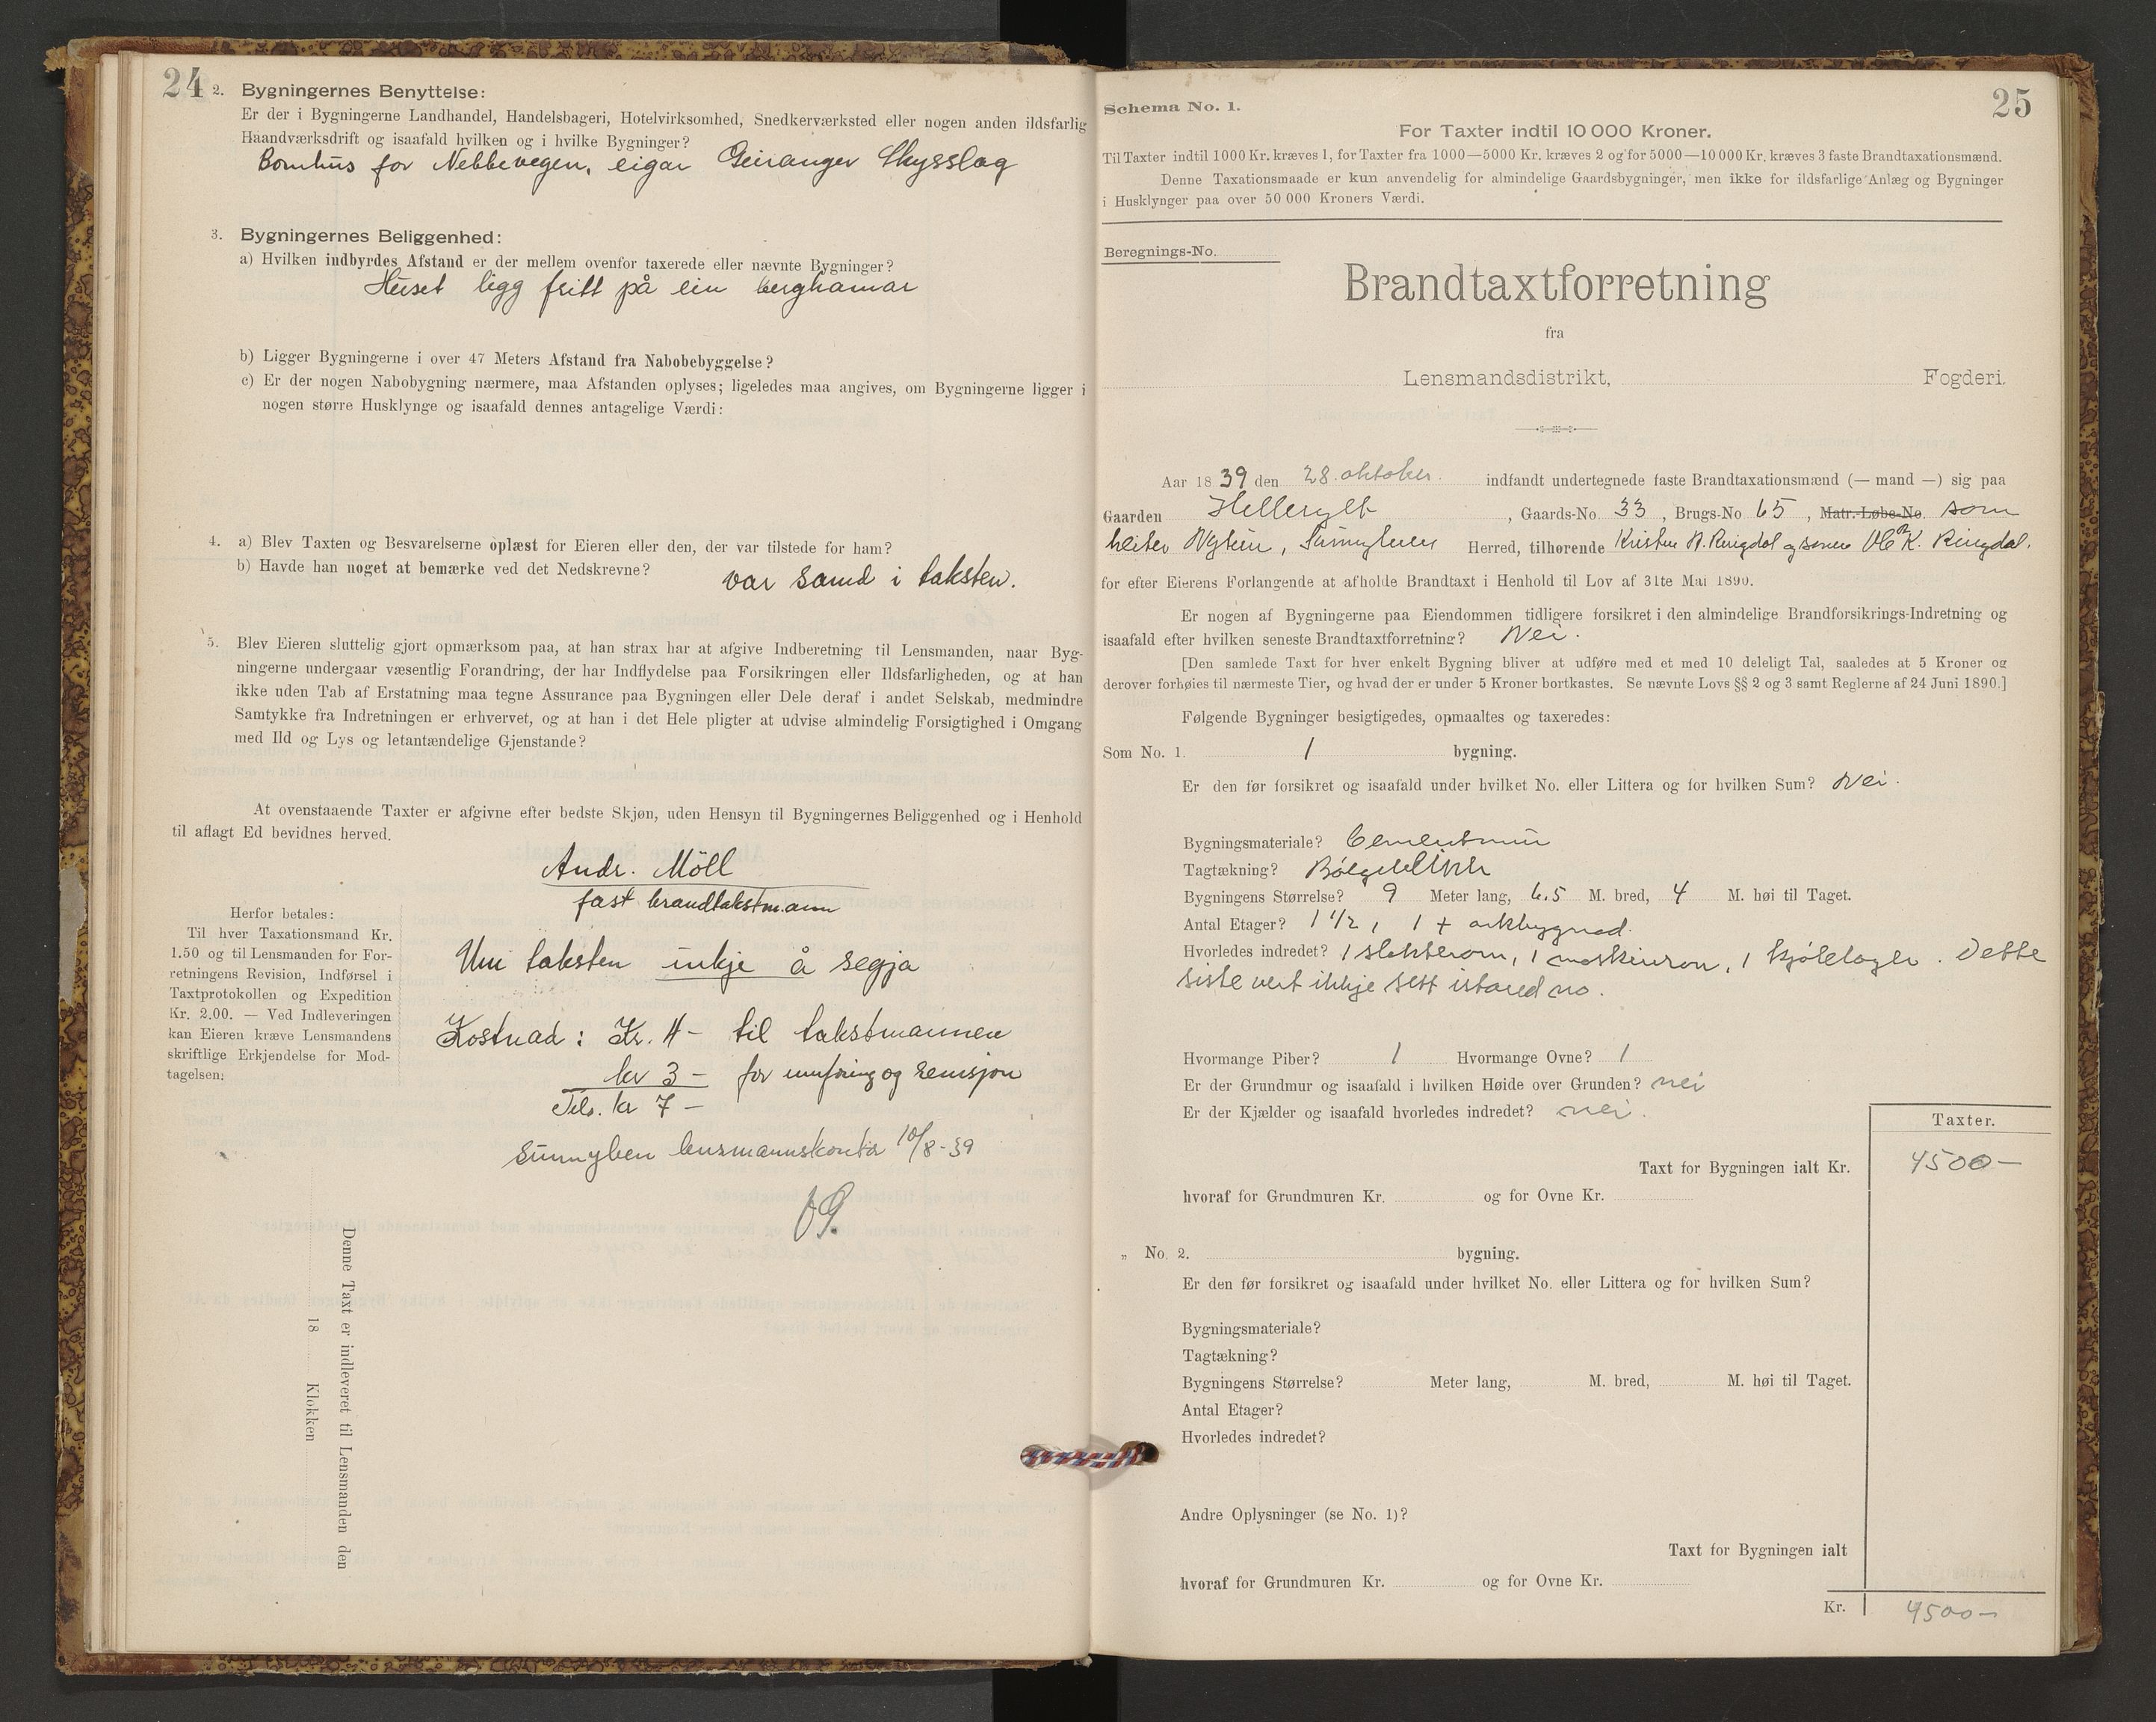 24
2. Bygningernes Benyttelse:
Er der i Bygningerne Landhandel, Handelsbageri, Hotelvirksomhed, Snedkerværksted eller nogen anden ildsfarlig
Haandværksdrift og isaafald hvilken og i hvilke Bygninger?
Bomhus for Nebbevegen, eigar Geiranger Skysslag
3. Bygningernes Beliggenhed:
a) Hvilken indbyrdes Afstand er der mellem ovenfor taxerede eller nævnte Bygninger?
Huset ligg fritt på ein berghamar
b) Ligger Bygningerne i over 47 Meters Afstand fra Nabobebyggelse?
c) Er der nogen Nabobygning nærmere, maa Afstanden oplyses; ligeledes maa angives, om Bygningerne ligger i
nogen større Husklynge og isaafald dennes antagelige Værdi:
4. a) Blev Taxten og Besvarelserne oplæst for Eieren eller den, der var tilstede for ham?
b) Havde han noget at bemærke ved det Nedskrevne?
var samd i taksten.
5. Blev Eieren sluttelig gjort opmærksom paa, at han strax har at afgive Indberetning til Lensmanden, naar Byg-
ningerne undergaar væsentlig Forandring, der har Indflydelse paa Forsikringen eller Ildsfarligheden, og at han
ikke uden Tab af Erstatning maa tegne Assurance paa Bygningen eller Dele deraf i andet Selskab, medmindre
Samtykke fra Indretningen er erhvervet, og at han i det Hele pligter at udvise almindelig Forsigtighed i Omgang
med Ild og Lys og letantændelige Gjenstande?
At ovenstaaende Taxter er afgivne efter bedste Skjøn, uden Hensyn til Bygningernes Beliggenhed og i Henhold
til aflagt Ed bevidnes herved.
Andr. Möll
fast brandtakstmann
Herfor betales:
Til hver Taxationsmand Kr.
1.50 og til Lensmanden for For-
retningens Revision, Indførsel i
Taxtprotokollen og Expedition
Kr. 2.00. — Ved Indleveringen
kan Eieren kræve Lensmandens
skriftlige Erkjendelse for Mod-
tagelsen.
Um taksten inkje å segja
Kostnad: Kr. 4 – til takstmannen
kr 3 – for innføring og revisjon
Tils. kr 7 –
Sunnylven lensmannskontor 10/8-39
Denne Taxt er indleveret til Lensmanden den
18 Klokken
25
Schema No. 1.
For Taxter indtil 10 000 Kroner.
Til Taxter indtil 1000 Kr. kræves 1, for Taxter fra 1000—5000 Kr. kræves 2 og for 5000—10 000 Kr. kræves 3 faste Brandtaxationsmænd.
Denne Taxationsmaade er kun anvendelig for almindelige Gaardsbygninger, men ikke for ildsfarlige Anlæg og Bygninger
i Husklynger paa over 50 000 Kroners Værdi.
Beregnings-No.
Brandtaxtforretning
fra
Lensmandsdistrikt, Fogderi.
Aar 1839 den 28. oktober. indfandt undertegnede faste Brandtaxationsmænd (— mand —) sig paa
Gaarden Hellesylt, Gaards-No. 33, Brugs-No 65, Matr.-Løbe-No. som
heiter Nytun, Sunnylven Herred, tilhørende Kristen A. Ringdal og sonen Ole K. Ringdal.
for efter Eierens Forlangende at afholde Brandtaxt i Henhold til Lov af 31te Mai 1890.
Er nogen af Bygningerne paa Eiendommen tidligere forsikret i den almindelige Brandforsikrings-Indretning og
isaafald efter hvilken seneste Brandtaxtforretning? Nei.
[Den samlede Taxt for hver enkelt Bygning bliver at udføre med et med 10 deleligt Tal, saaledes at 5 Kroner og
derover forhøies til nærmeste Tier, og hvad der er under 5 Kroner bortkastes. Se nævnte Lovs §§ 2 og 3 samt Reglerne af 24 Juni 1890.]
Følgende Bygninger besigtigedes, opmaaltes og taxeredes:
Som No. 1. 1 bygning.
Er den før forsikret og isaafald under hvilket No. eller Littera og for hvilken Sum? Nei.
Bygningsmateriale? Cementmur
Tagtækning? Bølgeblikk
Bygningens Størrelse? 9 Meter lang, 6,5 M. bred, 4 M. høi til Taget.
Antal Etager? 1 1/2, 1 + arkbygnad.
Hvorledes indredet? 1 slakterom, 1 maskinrom, 1 kjølelager. Dette
siste vert ikkje sett istand no.
Hvormange Piber? 1 Hvormange Ovne? 1
Er der Grundmur og isaafald i hvilken Høide over Grunden? nei
Er der Kjælder og isaafald hvorledes indredet? nei.
Taxter.
Taxt for Bygningen ialt Kr. 4500 —
hvoraf for Grundmuren Kr. og for Ovne Kr.
„ No. 2. bygning.
Er den før forsikret og isaafald under hvilket No. eller Littera og for hvilken Sum?
Bygningsmateriale?
Tagtækning?
Bygningens Størrelse? Meter lang, M. bred, M. høi til Taget.
Antal Etager?
Hvorledes indredet?
Andre Oplysninger (se No. 1)?
Taxt for Bygningen ialt
hvoraf for Grundmuren Kr. og for Ovne Kr.
Kr. 4500 —